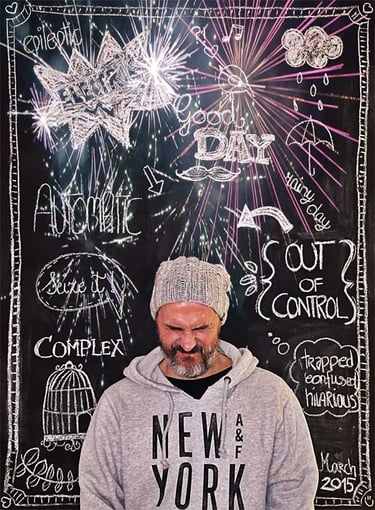 epileptic
Good
DAY
rainy day
AUTOMATIC
OUT
OF
CONTROL
Seize it
COMPLEX
trapped
confused
hilarious
NEW
YORK
A&F
March
2015